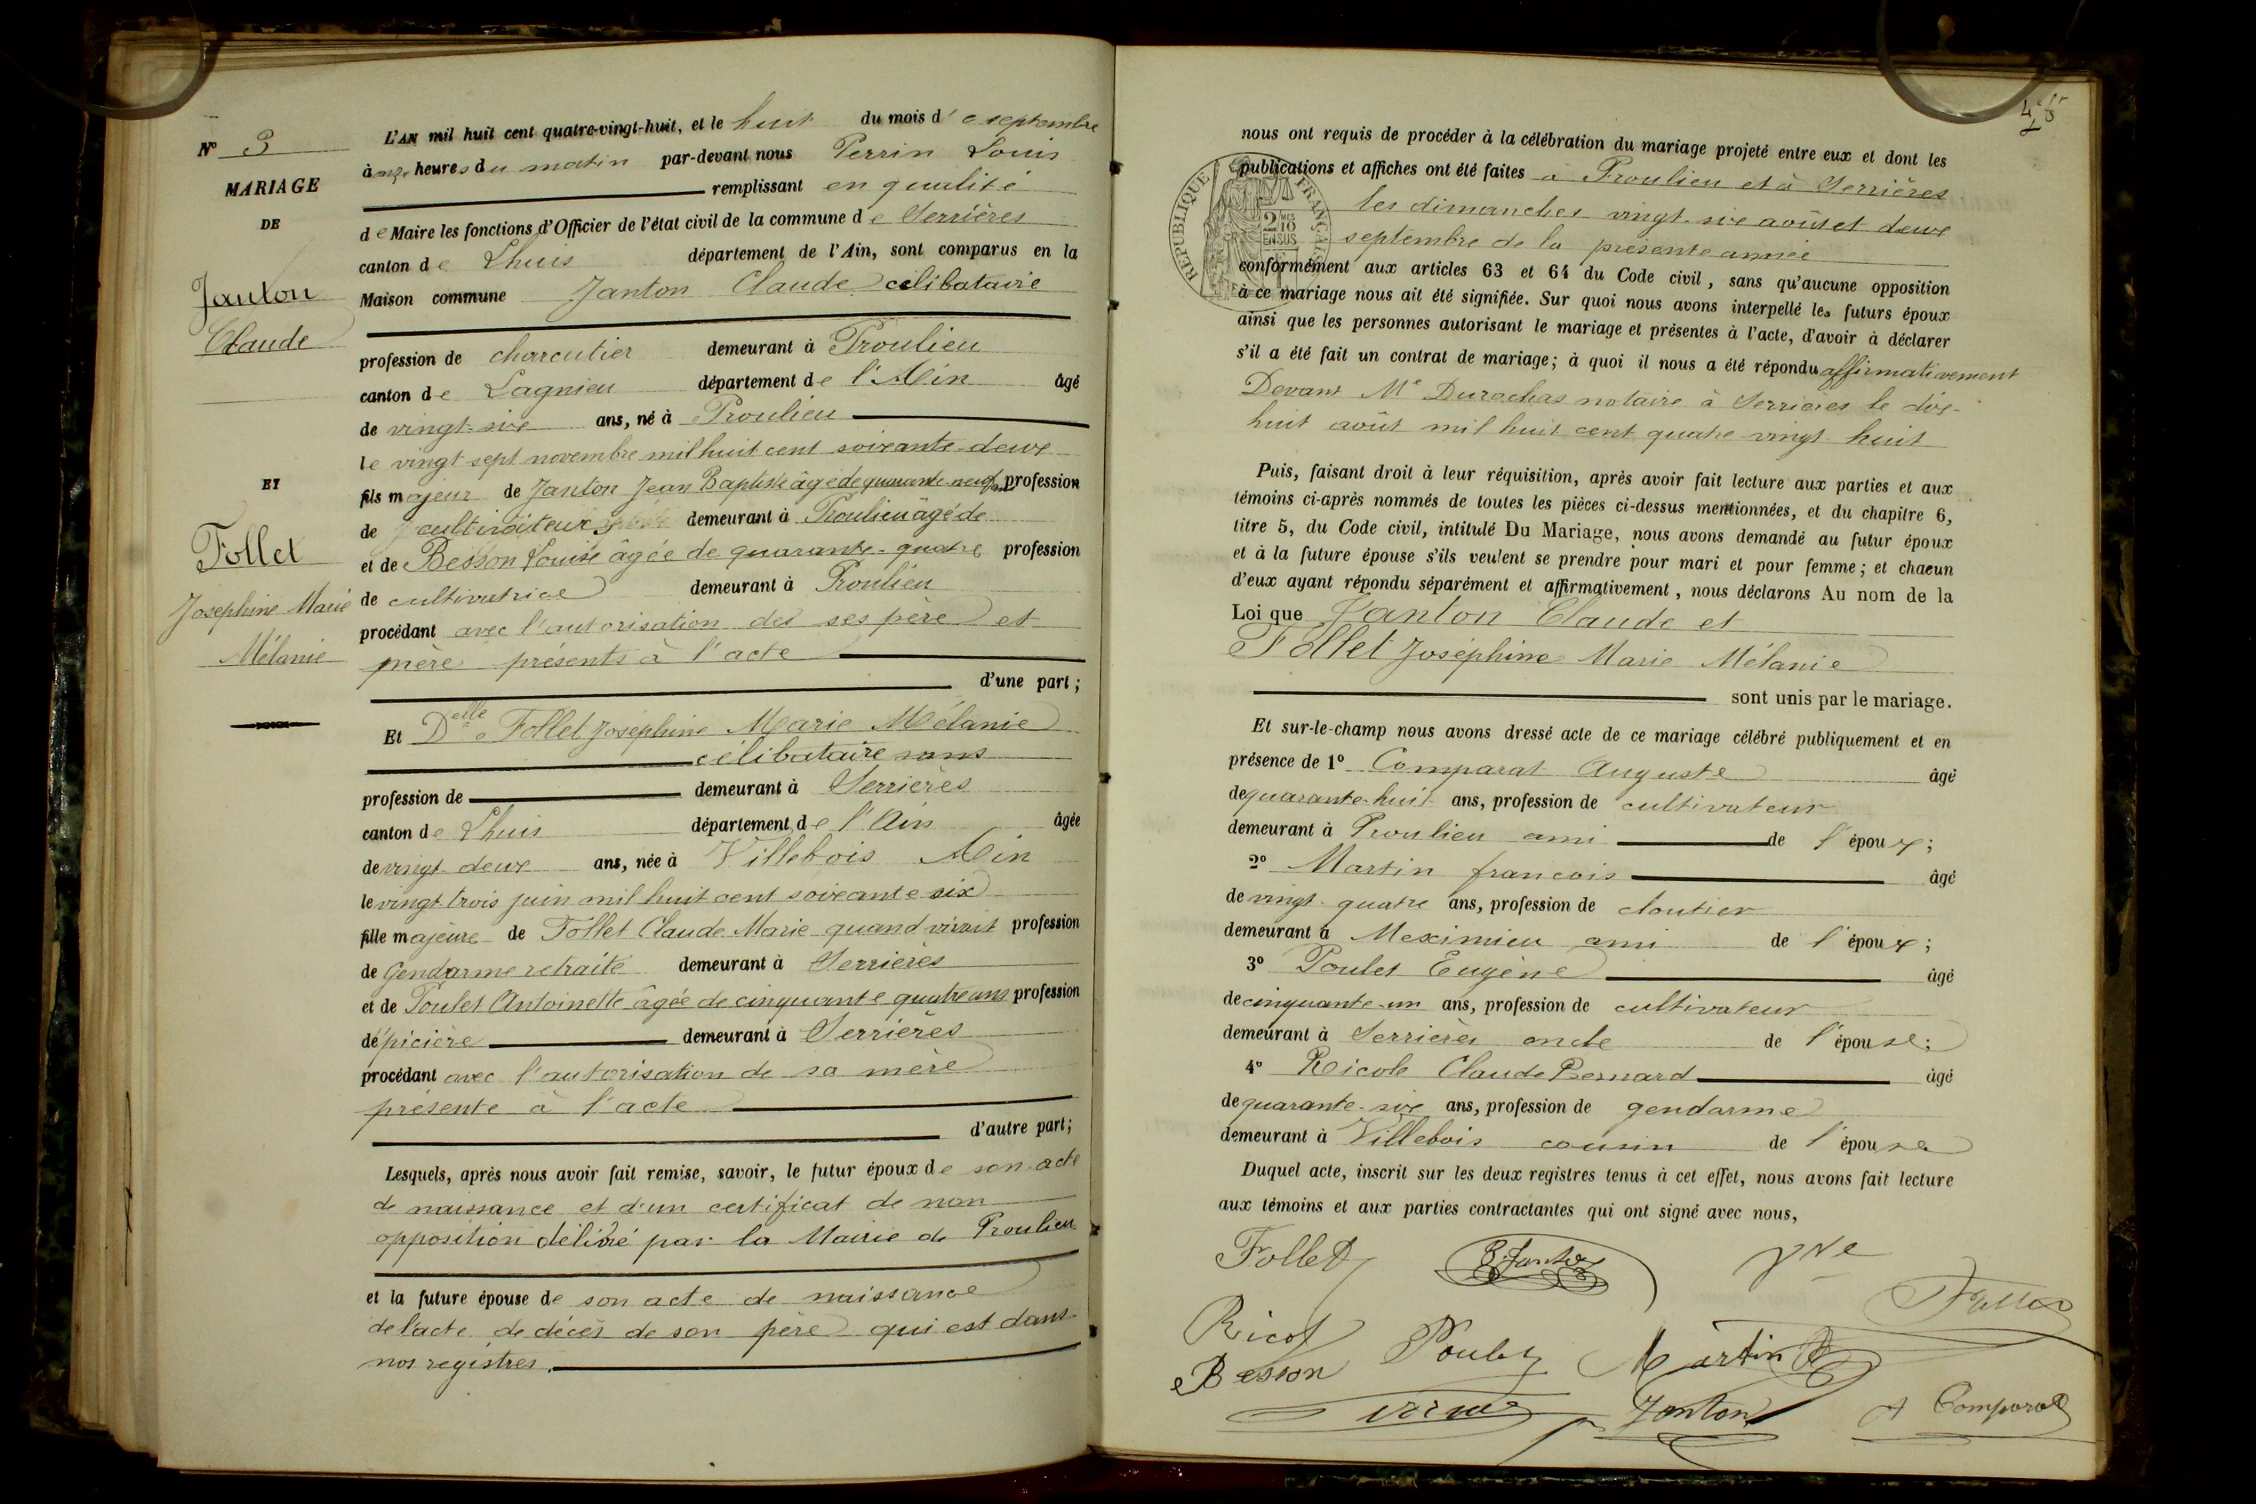 N° 3
MARIAGE
DE
Janton
Claude
ET
Follet
Josephine Marie
Mélanie
L'AN mil huit cent quatre-vingt-huit, et le huit du mois de septembre
à onze heures du matin par-devant nous Perrin Louis
remplissant en qualité
de Maire les fonctions d'Officier de l'état civil de la commune de Serrières
canton de Lhuis département de l'Ain, sont comparus en la
Maison commune Janton Claude célibataire
profession de charcutier demeurant à Proulieu
canton de Lagnieu département de l'Ain âgé
de vingt-six ans, né à Proulieu
le vingt sept novembre mil huit cent soixante-deux
fils majeur de Janton Jean Baptiste âgé de quarante-neuf ans profession
de cultivateur demeurant à Proulieu âgé de
et de Besson Louise âgée de quarante-quatre profession
de cultivatrice demeurant à Proulieu
procédant avec l'autorisation des ses père et
mère présents à l'acte
d'une part;
Et Delle Follet Joséphine Marie Mélanie
célibataire sans
profession de demeurant à Serrières
canton de Lhuis département de l'Ain âgée
de vingt-deux ans, née à Villebois Ain
le vingt-trois juin mil huit cent soixante six
fille majeure de Follet Claude Marie quand vivait profession
de Gendarme retraité demeurant à Serrières
et de Poulet Antoinette âgée de cinquante quatre ans profession
d'épicière demeurant à Serrières
procédant avec l'autorisation de sa mère
présente à l'acte
d'autre part;
Lesquels, après nous avoir fait remise, savoir, le futur époux de son acte
de naissance et d'un certificat de non
opposition délivré par la Mairie de Proulieu
et la future épouse de son acte de naissance
de l'acte de décès de son père qui est dans
nos registres.
48
RÉPUBLIQUE FRANÇAISE
2/10
EN SUS
nous ont requis de procéder à la célébration du mariage projeté entre eux et dont les
publications et affiches ont été faites à Proulieu et à Serrières
les dimanches vingt-six août et deux
septembre de la présente année
conformément aux articles 63 et 64 du Code civil, sans qu'aucune opposition
à ce mariage nous ait été signifiée. Sur quoi nous avons interpellé les futurs époux
ainsi que les personnes autorisant le mariage et présentes à l'acte, d'avoir à déclarer
s'il a été fait un contrat de mariage; à quoi il nous a été répondu affirmativement
Devant Me Durochas notaire à Serrières le dix-
huit août mil huit cent quatre vingt huit
Puis, faisant droit à leur réquisition, après avoir fait lecture aux parties et aux
témoins ci-après nommés de toutes les pièces ci-dessus mentionnées, et du chapitre 6,
titre 5, du Code civil, intitulé Du Mariage, nous avons demandé au futur époux
et à la future épouse s'ils veulent se prendre pour mari et pour femme; et chacun
d'eux ayant répondu séparément et affirmativement, nous déclarons Au nom de la
Loi que Janton Claude et
Follet Joséphine Marie Mélanie
sont unis par le mariage.
Et sur-le-champ nous avons dressé acte de ce mariage célébré publiquement et en
présence de 1° Comparat Auguste âgé
de quarante-huit ans, profession de cultivateur
demeurant à Proulieu ami de l'époux;
2° Martin françois âgé
de vingt-quatre ans, profession de cloutier
demeurant à Meximieu ami de l'époux;
3° Poulet Eugène âgé
de cinquante-un ans, profession de cultivateur
demeurant à Serrières oncle de l'épouse;
4° Ricole Claude Bernard âgé
de quarante-six ans, profession de gendarme
demeurant à Villebois cousin de l'épouse
Duquel acte, inscrit sur les deux registres tenus à cet effet, nous avons fait lecture
aux témoins et aux parties contractantes qui ont signé avec nous,
Follet Janton Vve
Follet
Ricol Poulet Martin
Besson
Perrin Janton A Comparat